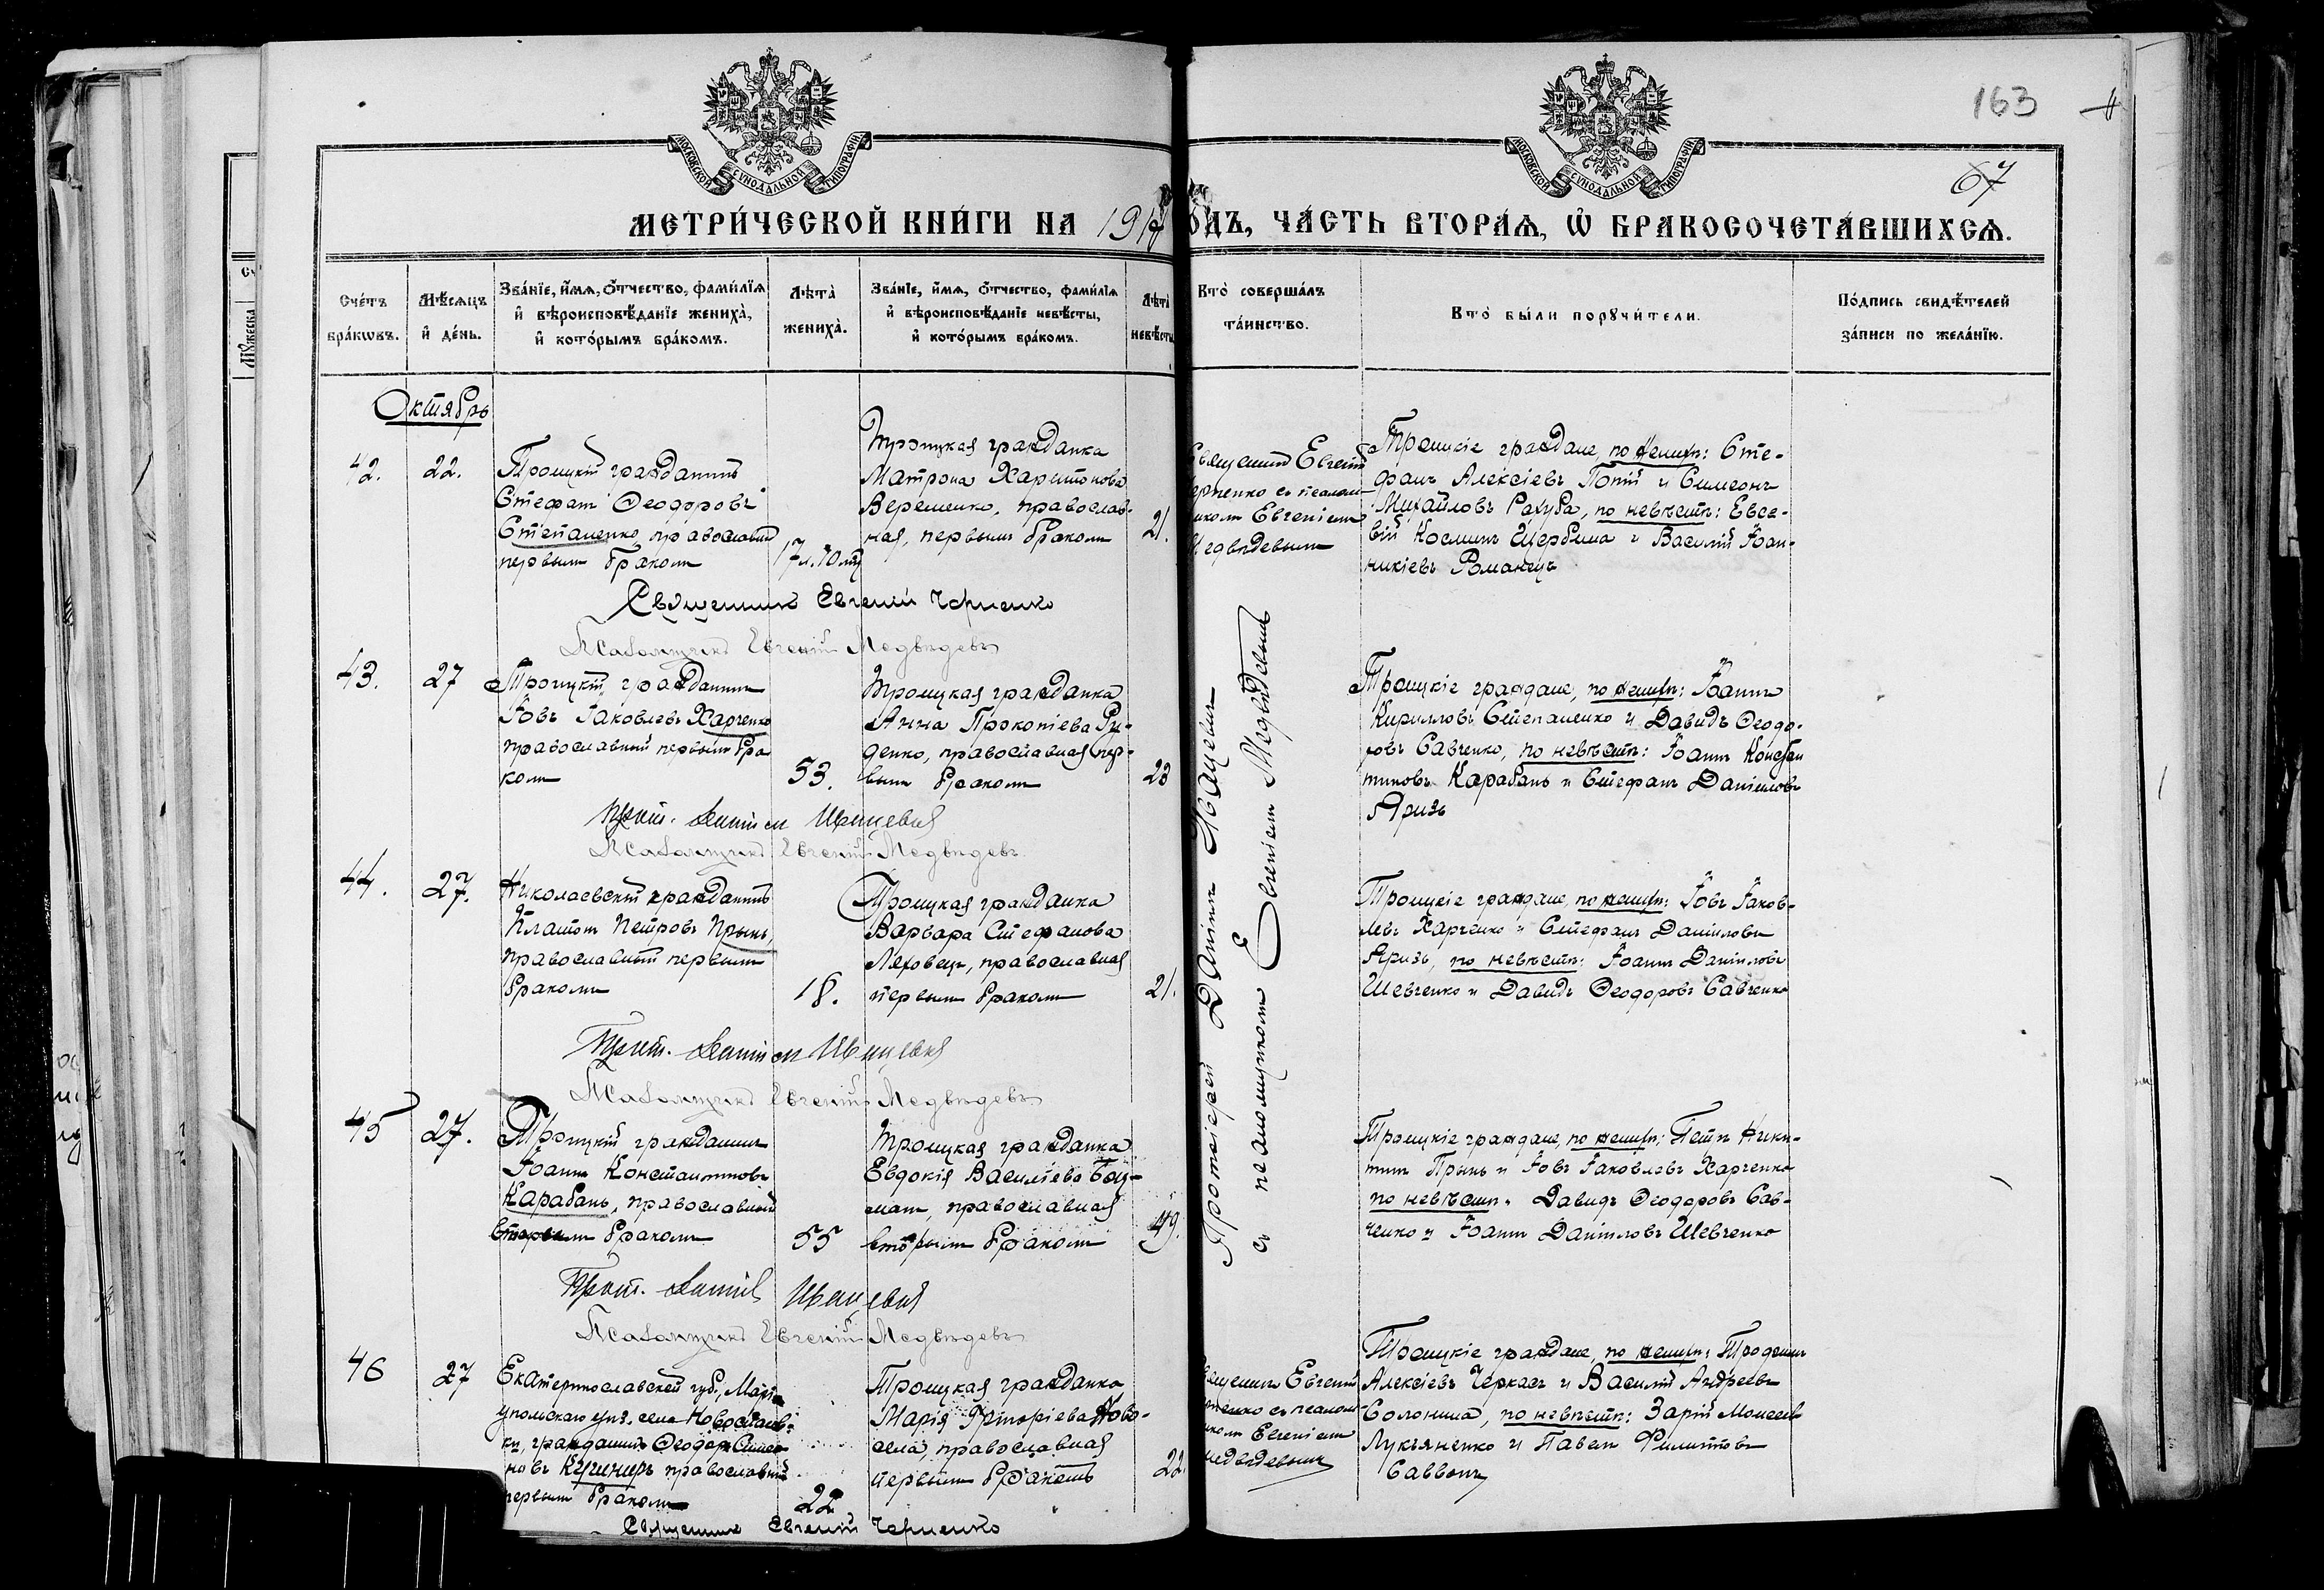 163
67
МОСКОВСКОЙ СУНОДАЛЬНОЙ ТИПОГРАФІИ
МОСКОВСКОЙ СУНОДАЛЬНОЙ ТИПОГРАФІИ
МЕТРИ́ЧЕСКОЙ КНИ́ГИ НА 1917
ОДЪ, ЧА́СТЬ ВТОРА́Я, Ѡ БРАКОСОЧЕТА́ВШИХСЯ.
Сче́тъ бра́кѡвъ.
Мѣ́сяцъ и҆ де́нь.
Зва́нїе, и҆́мя, о҆́тчество, фами́лїя
и҆ вѣроисповѣ́данїе жениха̀,
и҆ кото́рымъ бра́комъ.
Лѣ́та̀ жениха̀.
Зва́нїе, и҆́мя, о҆́тчество, фами́лїя
и҆ вѣроисповѣ́данїе невѣ́сты,
и҆ кото́рымъ бра́комъ.
Лѣ́та̀ невѣ́сты
Кто̀ соверша́лъ
та́инство.
Кто̀ бы́ли порꙋчи́тели.
По́дпись свидѣ́телей
за́писи по жела́нїю.
Октябрь
42.
22.
Троицкій гражданинъ
Стефанъ Ѳеодоровъ
Степаненко, православный
первымъ бракомъ
17 л. 10 м.
Троицкая гражданка
Матрона Харитонова
Веременко, православ-
ная, первымъ бракомъ
21.
Священникъ Евгеній
съ псалом-
Евгеніемъ
Медвѣдевымъ
Троицкіе граждане, по женихѣ: Сте-
фанъ Алексіевъ Попій и Симеонъ
Михайловъ Рахуба, по невѣстѣ: Евсе-
вій Косминъ Щербина и Василій Іоан-
никіевъ Романецъ
Священникъ Евгеній Черненко
Псаломщикъ Евгеній Медвѣдевъ
43.
27
Троицкій гражданинъ
Іовъ Іаковлевъ Харченко
православный первымъ бра
комъ
53.
Троицкая гражданка
Анна Прокопіева Ру-
денко, православная пер-
вымъ бракомъ
23
Протоіерей Даніилъ Ивацевичъ
съ псаломщикомъ Евгеніемъ Медвѣдевымъ
Троицкіе граждане, по женихѣ: Іоаннъ
Кирилловъ Степаненко и Давидъ Ѳеодо-
ровъ Савченко, по невѣстѣ: Іоаннъ Констан
тиновъ Карабань и Стефанъ Даніиловъ
Яризь
Прот. Даніилъ Ивацевичъ
Псаломщикъ Евгеній Медвѣдевъ
44.
27.
Николаевскій гражданинъ
Платонъ Петровъ Прынь,
православный первымъ
бракомъ
18.
Троицкая гражданка
Варвара Стефанова
Ляховецъ, православная
первымъ бракомъ
21.
Троицкіе граждане, по женихѣ: Іовъ Іаков-
левъ Харченко и Стефанъ Даніиловъ
Яризь, по невѣстѣ: Іоаннъ Даніиловъ
Шевченко и Давидъ Ѳеодоровъ Савченко
Прот. Даніилъ Ивацевичъ
Псаломщикъ Евгеній Медвѣдевъ
45
27.
Троицкій гражданинъ
Іоаннъ Константиновъ
Карабань, православный
вторымъ бракомъ
55
Троицкая гражданка
Евдокія Василіева Боц-
манъ, православная
вторымъ бракомъ
49.
Троицкіе граждане, по женихѣ: Петръ Ники-
тинъ Прынь и Іовъ Іаковлевъ Харченко
по невѣстѣ: Давидъ Ѳеодоровъ Сав-
ченко и Іоаннъ Даніиловъ Шевченко
Прот. Даніилъ Ивацевичъ
Псаломщикъ Евгеній Медвѣдевъ
46
27
Екатеринославской губ., Маріу
упольскаго уѣз. села Новоспасов-
ки, гражданинъ Ѳеодоръ Симео
новъ Кушниръ православный
первымъ бракомъ
22
Троицкая гражданка
Марія Григоріева Ново-
села, православная
первымъ бракомъ
22
Священникъ Евгеній
съ псалом-
Евгеніемъ
Медвѣдевымъ
Троицкіе граждане, по женихѣ: Трофимъ
Алексіевъ Черкасъ и Василій Андреевъ
Солонина, по невѣстѣ: Моисеевъ
Лукьяненко и Павелъ Филипповъ
Саввонъ
Священникъ Евгеній Черненко